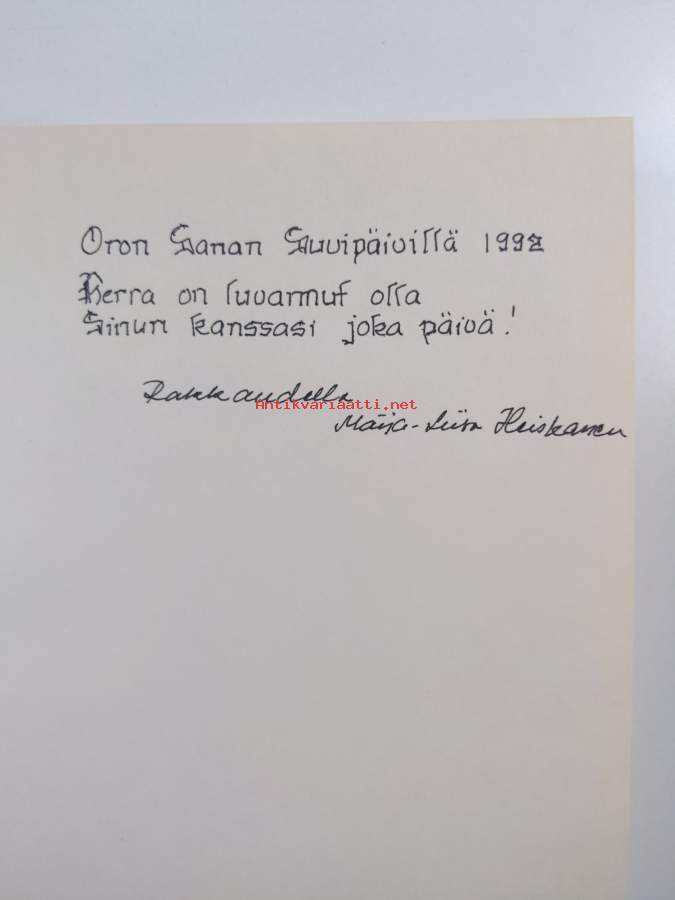 Oron Sanan Suvipäivillä 1992
Herra on luvannut olla
Sinun kanssasi joka päivä!
Rakkaudella
Antikvariaatti.net
Marja-Liisa Heiskanen